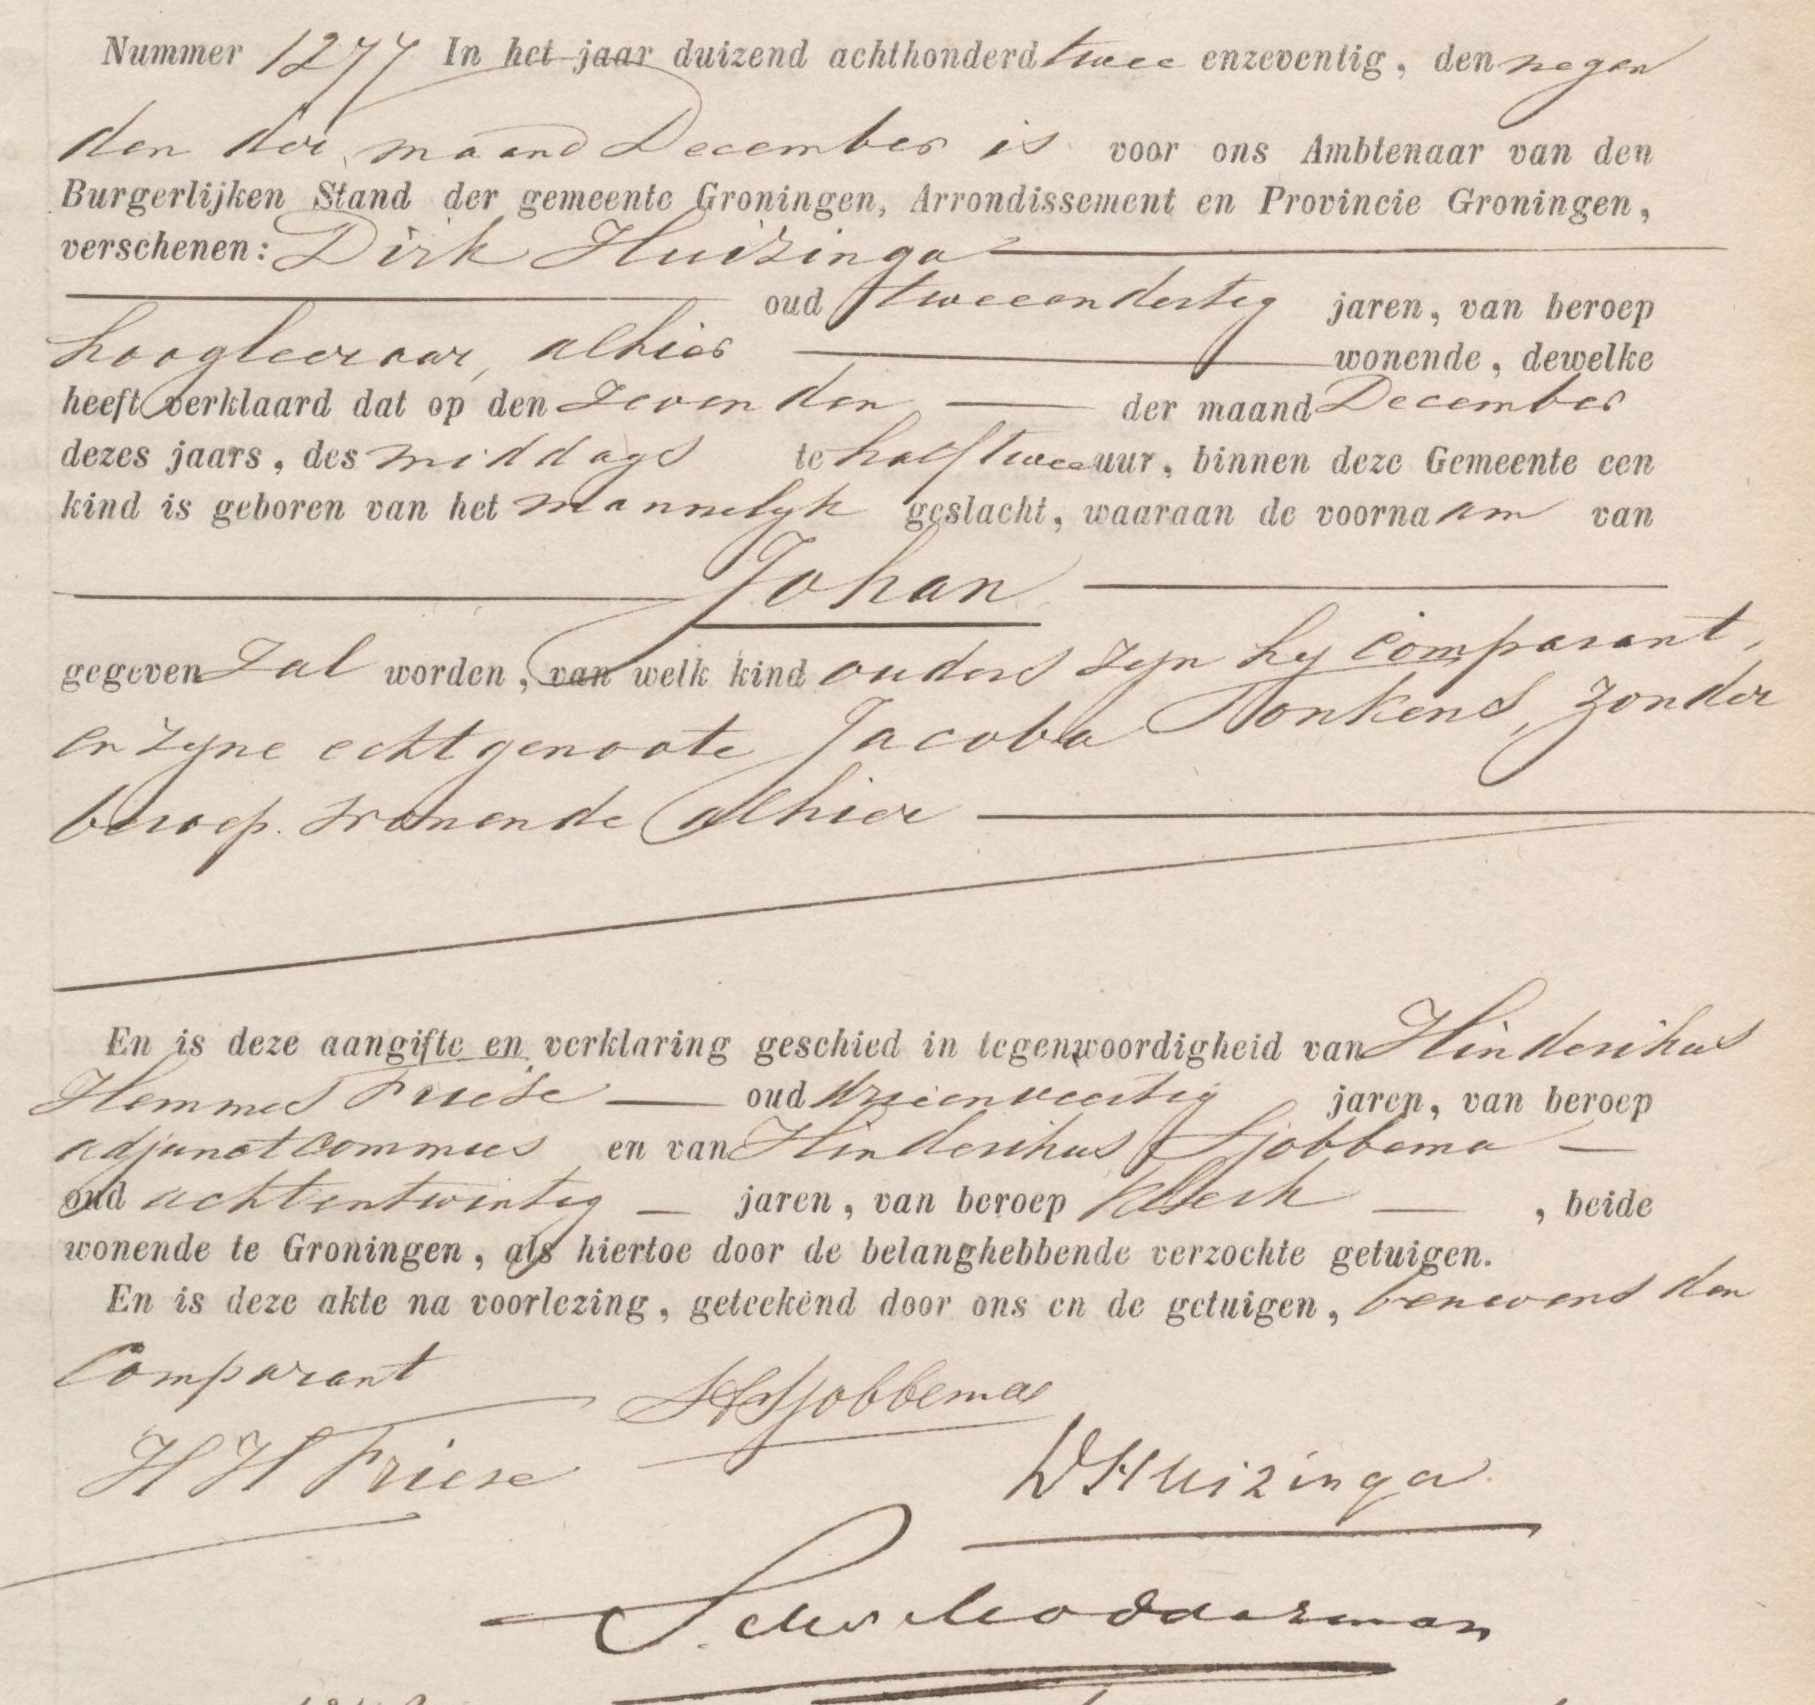 Nummer 1277 In het jaar duizend achthonderd twee enzeventig, den negen
den der maand December is voor ons Ambtenaar van den
Burgerlijken Stand der gemeente Groningen, Arrondissement en Provincie Groningen,
verschenen: Dirk Huizinga
oud tweeendertig jaren, van beroep
hoogleeraar, alhier wonende, dewelke
heeft verklaard dat op den zevenden der maand December
dezes jaars, des middags te half twee uur, binnen deze Gemeente een
kind is geboren van het mannelyk geslacht, waaraan de voornaam van
Johan
gegeven zal worden, van welk kind ouders zyn hy comparant,
en zyne echtgenoote Jacoba Tonkens, zonder
beroep. wonende alhier
En is deze aangifte en verklaring geschied in tegenwoordigheid van Hinderikus
Hemmes Friese oud drieenveertig jaren, van beroep
adjunct commies en van Hinderikus Sjobbema
oud achtentwintig jaren, van beroep klerk, beide
wonende te Groningen, als hiertoe door de belanghebbende verzochte getuigen.
En is deze akte na voorlezing, geteekend door ons en de getuigen, benevens den
Comparant
HSjobbema
HH Friese
DHuizinga
Modderman